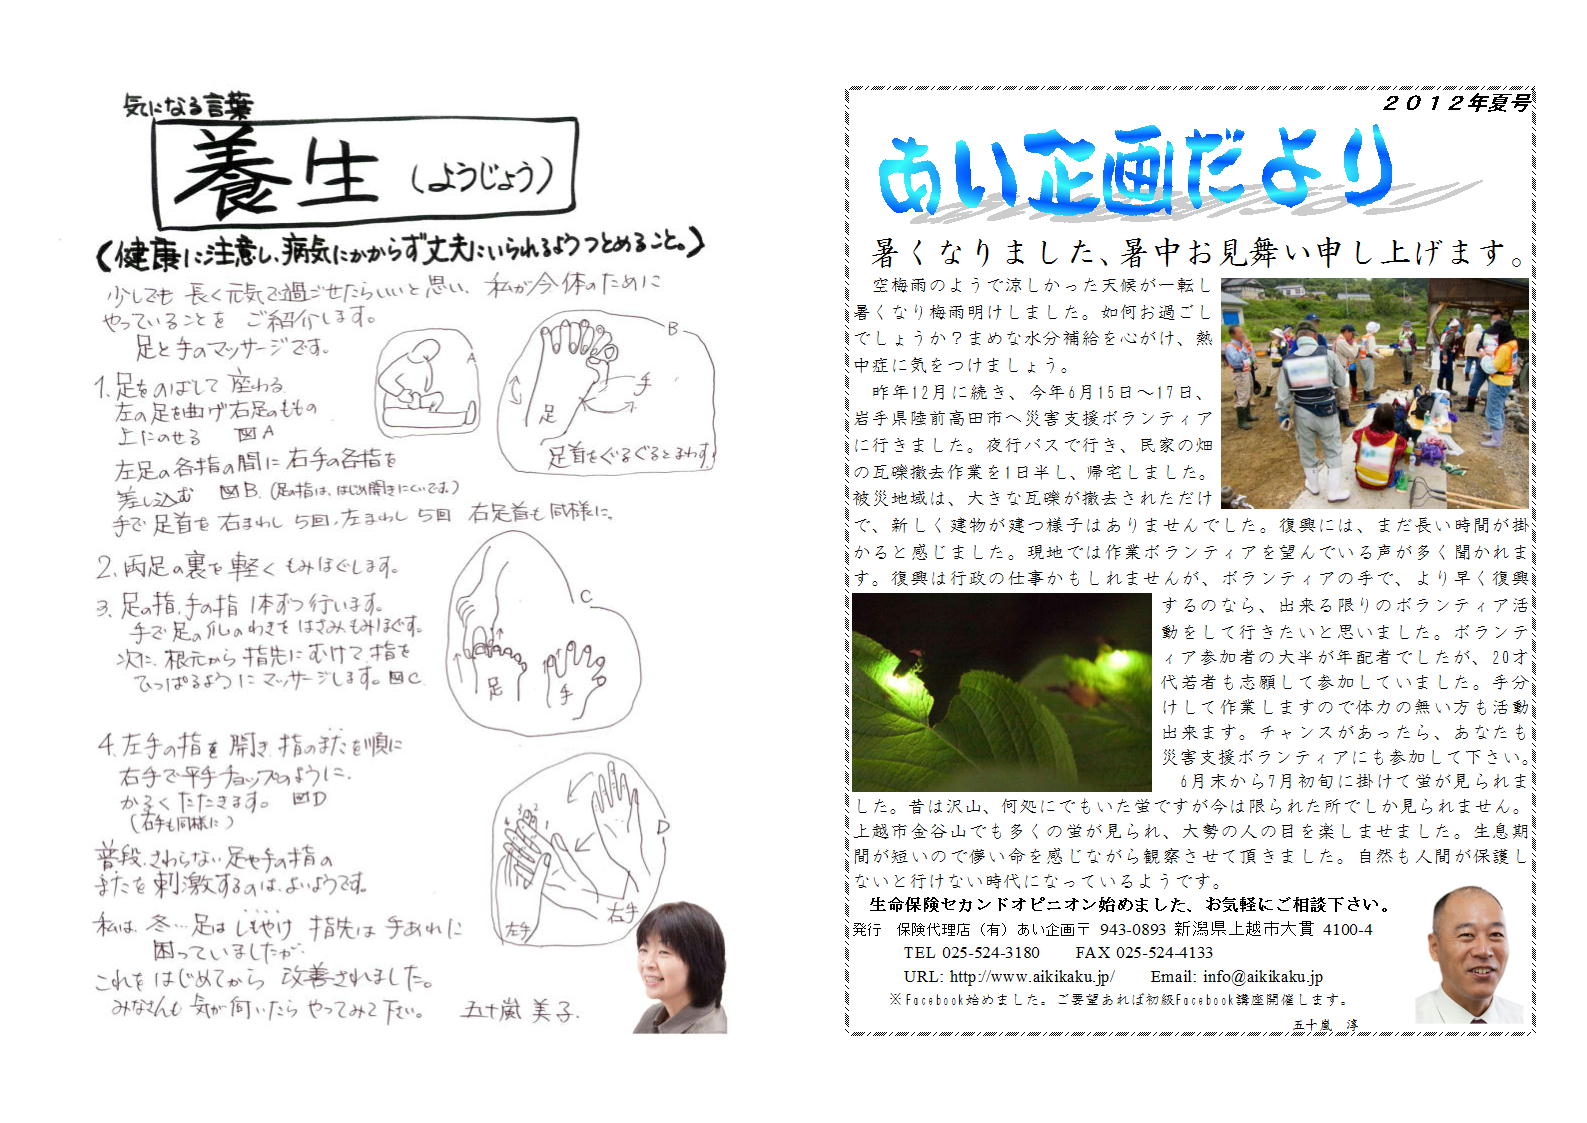 気になる言葉
養生（ようじょう）
（健康に注意し、病気にかからず丈夫にいられるようつとめること。）
少しでも 長く元気で過ごせたらいいと思い、私が今体のために
やっていることを ご紹介します。
足と手のマッサージです。
1. 足をのばして 座わる
左の足を曲げ右足のももの
上にのせる 図A
左足の各指の間に 右手の各指を
差し込む 図B.（足の指は、はじめ開きにくいです。）
手で足首を 右まわし 5回、左まわし 5回 右足首も同様に。
A
B
足
手
足首をぐるぐるとまわす。
2. 両足の裏を軽く もみほぐします。
3. 足の指、手の指 1本ずつ行います。
手で足の爪のわきを はさみもみほぐす。
次に、根元から 指先にむけて 指を
ひっぱるように マッサージします。図C
C
足
手
4. 左手の指を 開き、指のまたを順に
右手で平手チョップのように、
かるくたたきます。 図D
（右手も同様に）
1 2 3
D
左手
右手
普段、さわらない足や手の指の
またを 刺激するのは、よいようです。
私は、冬…足は しもやけ 指先は 手あれに
困っていましたが、
これをはじめてから 改善されました。
みなさんも 気が向いたら やってみて下さい。 五十嵐 美子.
２０１２年夏号
あい企画だより
暑くなりました、暑中お見舞い申し上げます。
空梅雨のようで涼しかった天候が一転し
暑くなり梅雨明けしました。如何お過ごし
でしょうか？まめな水分補給を心がけ、熱
中症に気をつけましょう。
昨年12月に続き、今年6月15日～17日、
岩手県陸前高田市へ災害支援ボランティア
に行きました。夜行バスで行き、民家の畑
の瓦礫撤去作業を1日半し、帰宅しました。
被災地域は、大きな瓦礫が撤去されただけ
で、新しく建物が建つ様子はありませんでした。復興には、まだ長い時間が掛
かると感じました。現地では作業ボランティアを望んでいる声が多く聞かれま
す。復興は行政の仕事かもしれませんが、ボランティアの手で、より早く復興
するのなら、出来る限りのボランティア活
動をして行きたいと思いました。ボランテ
ィア参加者の大半が年配者でしたが、20才
代若者も志願して参加していました。手分
けして作業しますので体力の無い方も活動
出来ます。チャンスがあったら、あなたも
災害支援ボランティアにも参加して下さい。
6月末から7月初旬に掛けて蛍が見られま
した。昔は沢山、何処にでもいた蛍ですが今は限られた所でしか見られません。
上越市金谷山でも多くの蛍が見られ、大勢の人の目を楽しませました。生息期
間が短いので儚い命を感じながら観察させて頂きました。自然も人間が保護し
ないと行けない時代になっているようです。
生命保険セカンドオピニオン始めました、お気軽にご相談下さい。
発行 保険代理店（有）あい企画〒 943-0893 新潟県上越市大貫 4100-4
TEL 025-524-3180 FAX 025-524-4133
URL: http://www.aikikaku.jp/ Email: info@aikikaku.jp
※Facebook始めました。ご要望あれば初級Facebook講座開催します。
五十嵐 淳